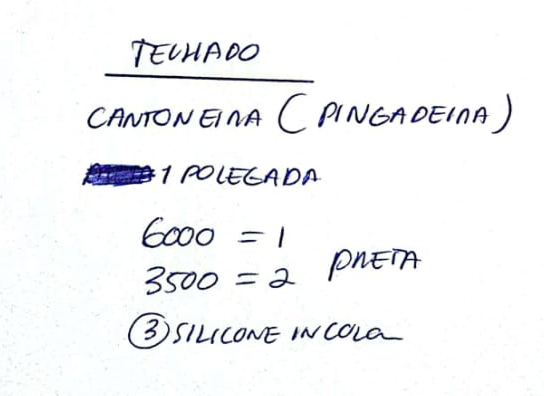 TELHADO
CANTONEIRA (PINGADEIRA)
1 POLEGADA
6000 = 1
3500 = 2 PRETA
③ SILICONE INCOLOR